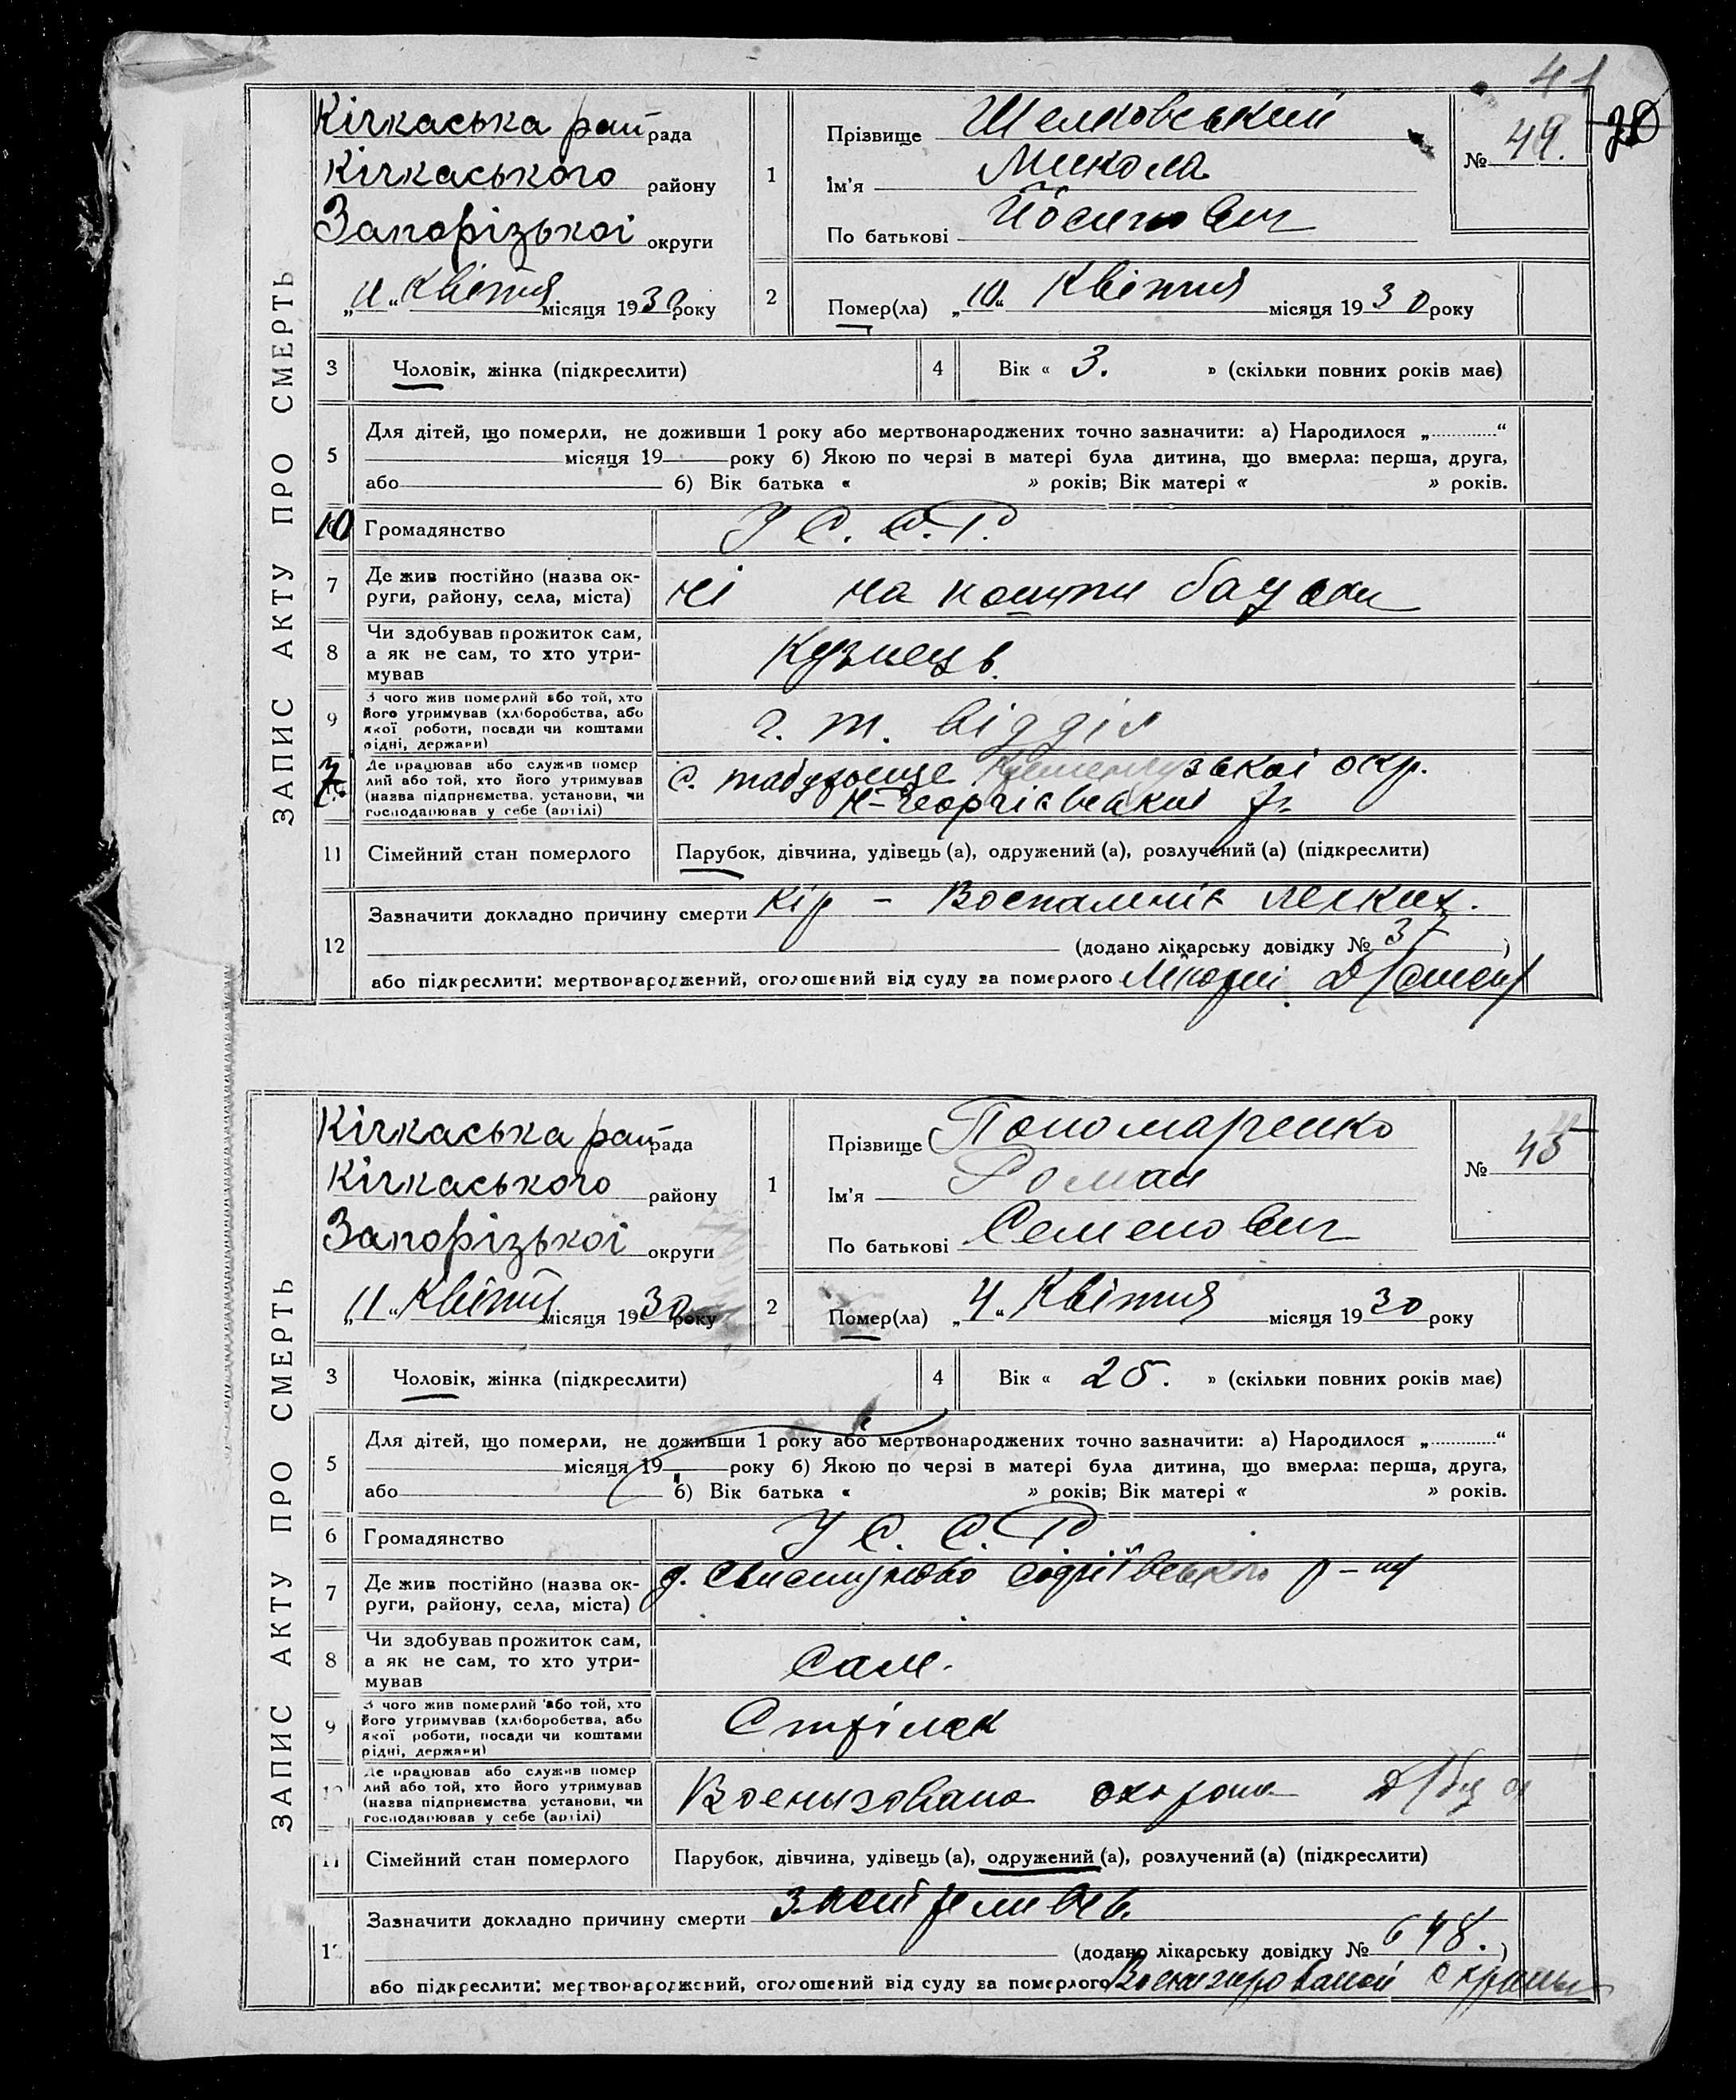 41
ЗАПИС АКТУ ПРО СМЕРТЬ
Кічкаська рай рада
Кічкаського району
Запорізької округи
„11“ Квітня місяця 1930 року
1
Прізвище Шелковський
Ім'я Микола
По батькові Йосипович
№ 49.
2
Помер(ла) „10“ Квітня місяця 1930 року
3 Чоловік, жінка (підкреслити)
4 Вік « 3. » (скільки повних років має)
5
Для дітей, що померли, не доживши 1 року або мертвонароджених точно зазначити: а) Народилося „............“
місяця 19 року б) Якою по черзі в матері була дитина, що вмерла: перша, друга,
або б) Вік батька « » років; Вік матері « » років.
10 Громадянство У С. С. Р.
7 Де жив постійно (назва ок-
руги, району, села, міста)
ні на кошти
8 Чи здобував прожиток сам,
а як не сам, то хто утри-
мував
Кузнець.
9 З чого жив померлий або той, хто
його утримував (хліборобства, або
якої роботи, посади чи коштами
рідні, держави)
г. т. відділ
7 Де працював або служив помер
лий або той, хто його утримував
(назва підприємства, установи, чи
господарював у себе (артілі)
с. окр.
Н-Георгієвської
11 Сімейний стан померлого Парубок, дівчина, удівець (а), одружений (а), розлучений (а) (підкреслити)
12
Зазначити докладно причину смерти Кір - Воспаленіє легких.
(додано лікарську довідку № 37)
або підкреслити: мертвонароджений, оголошений від суду за померлого
ЗАПИС АКТУ ПРО СМЕРТЬ
Кічкаська рай рада
Кічкаського району
Запорізької округи
„11“ Квітня місяця 1930 року
1
Прізвище Пономаренко
Ім'я Роман
По батькові Семенович
№
2
Помер(ла) „4“ Квітня місяця 1930 року
3 Чоловік, жінка (підкреслити)
4 Вік « 25. » (скільки повних років має)
5
Для дітей, що померли, не доживши 1 року або мертвонароджених точно зазначити: а) Народилося „............“
місяця 19 року б) Якою по черзі в матері була дитина, що вмерла: перша, друга,
або б) Вік батька « » років; Вік матері « » років.
6 Громадянство У С. С. Р
7 Де жив постійно (назва ок-
руги, району, села, міста)
р-ну
8 Чи здобував прожиток сам,
а як не сам, то хто утри-
мував
Сам.
9 З чого жив померлий або той, хто
його утримував (хліборобства, або
якої роботи, посади чи коштами
рідні, держави)
Стрілек
Де працював або служив помер
лий або той, хто його утримував
(назва підприємства установи, чи
господарював у себе (артілі)
Воєнизована охорона
11 Сімейний стан померлого Парубок, дівчина, удівець (а), одружений (а), розлучений (а) (підкреслити)
Зазначити докладно причину смерти Застреливсь.
(додано лікарську довідку № 648.)
або підкреслити: мертвонароджений, оголошений від суду за померлого Военизированой охраны